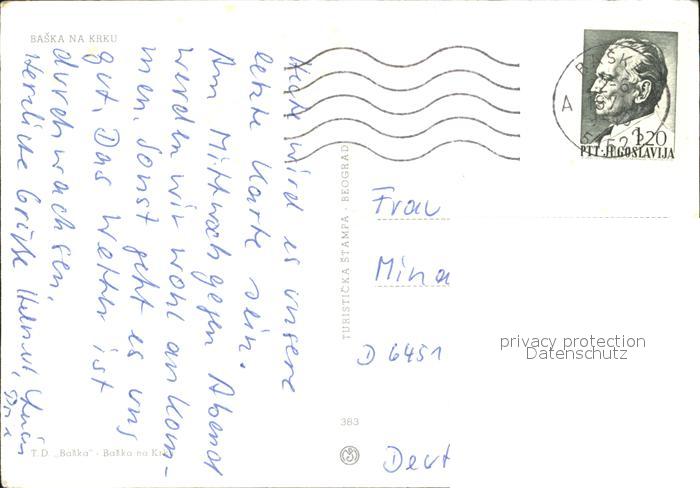 BAŠKA NA KRKU
Heute wird es unsere
letzte Karte sein.
Am Mittwoch gegen Abend
werden wir wohl ankom-
men. Sonst geht es uns
gut. Das Wetter ist
durchwachsen.
Herzliche Grüße Helmut,
T.D. „Baška" - Baška na Krku
TURISTIČKA ŠTAMPA - BEOGRAD
383
BAŠK
A
1.20
PTT·JUGOSLAVIJA
Frau
Mina
D 6451
Deut
privacy protection
Datenschutz